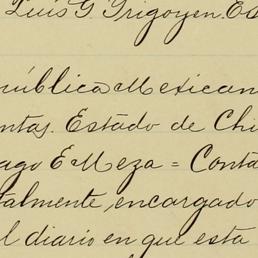 Luis G Yrigoyen. Es
pública Mexican
ntas. Estado de Chi
ago E Meza = Conta
almente, encargado
l diario en que esta